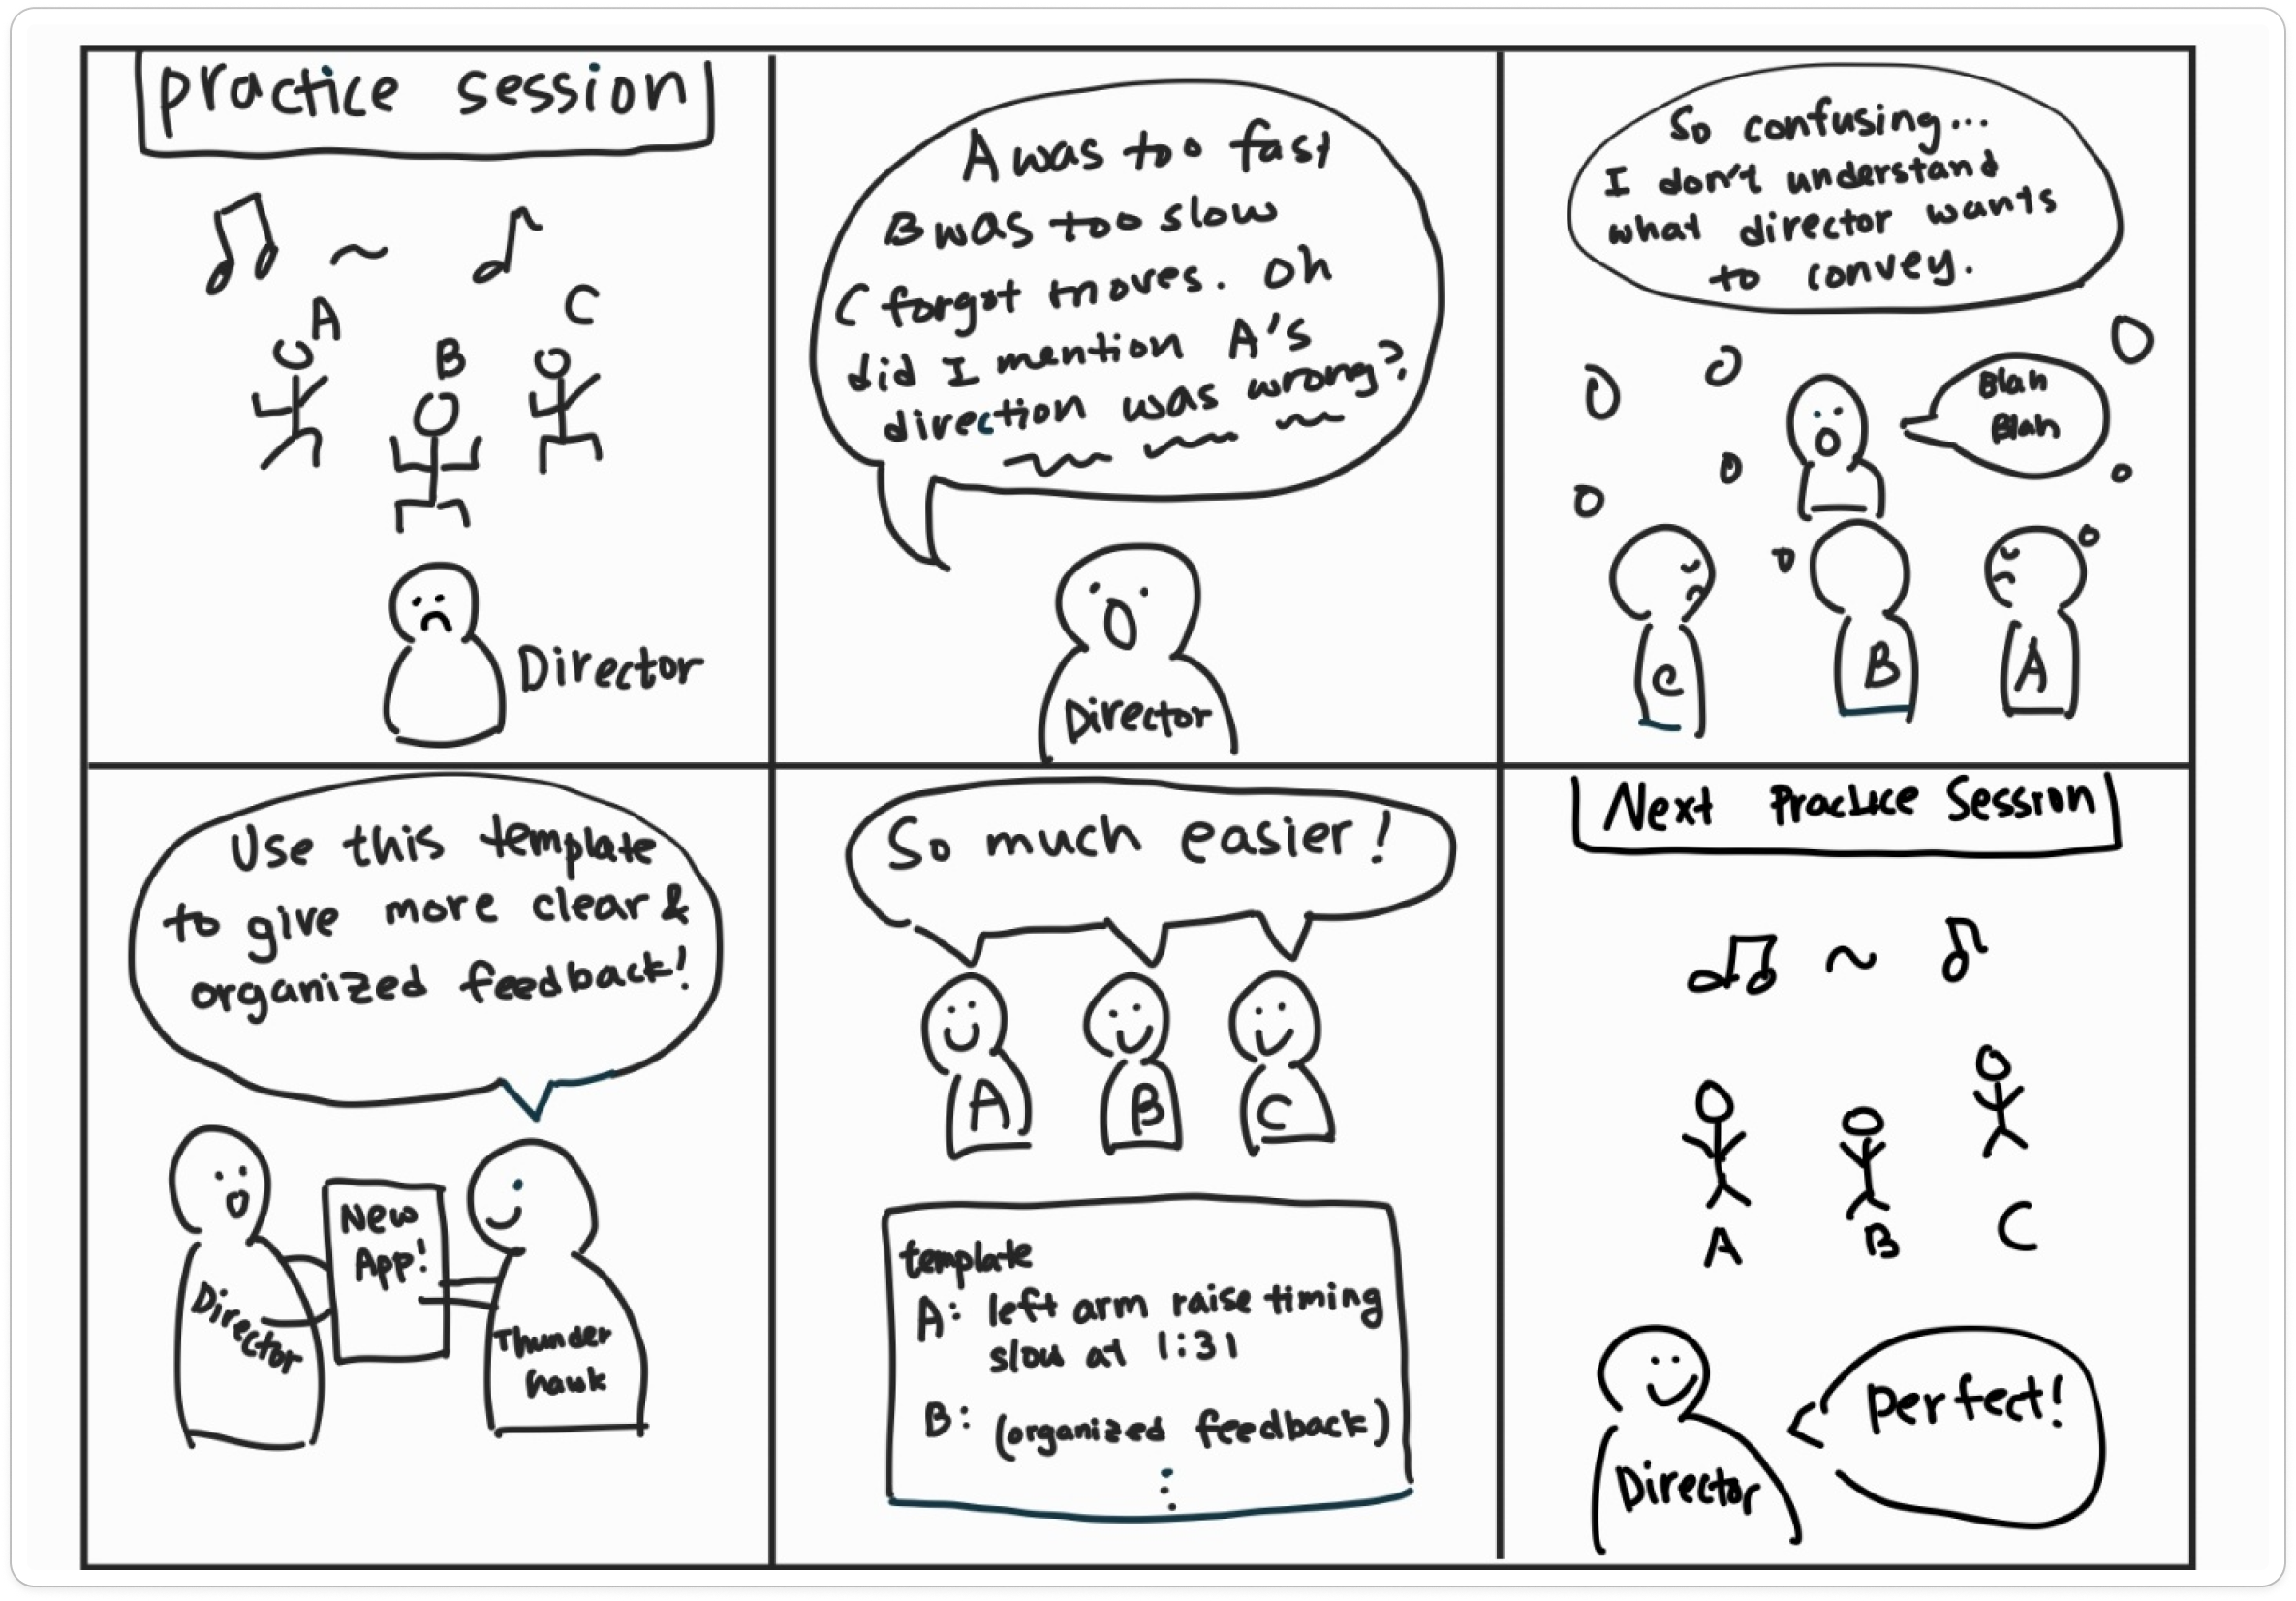 practice session
A
B
C
Director
A was too fast
B was too slow
C forgot moves. Oh
did I mention A's
direction was wrong?
Director
So confusing...
I don't understand
what director wants
to convey.
Blah
Blah
C
B
A
Use this template
to give more clear &
organized feedback!
New
App!
Director
Thunder
hawk
So much easier!
A
B
C
template
A: left arm raise timing
slow at 1:31
B: (organized feedback)
⋮
Next Practice Session
A
B
C
Perfect!
Director